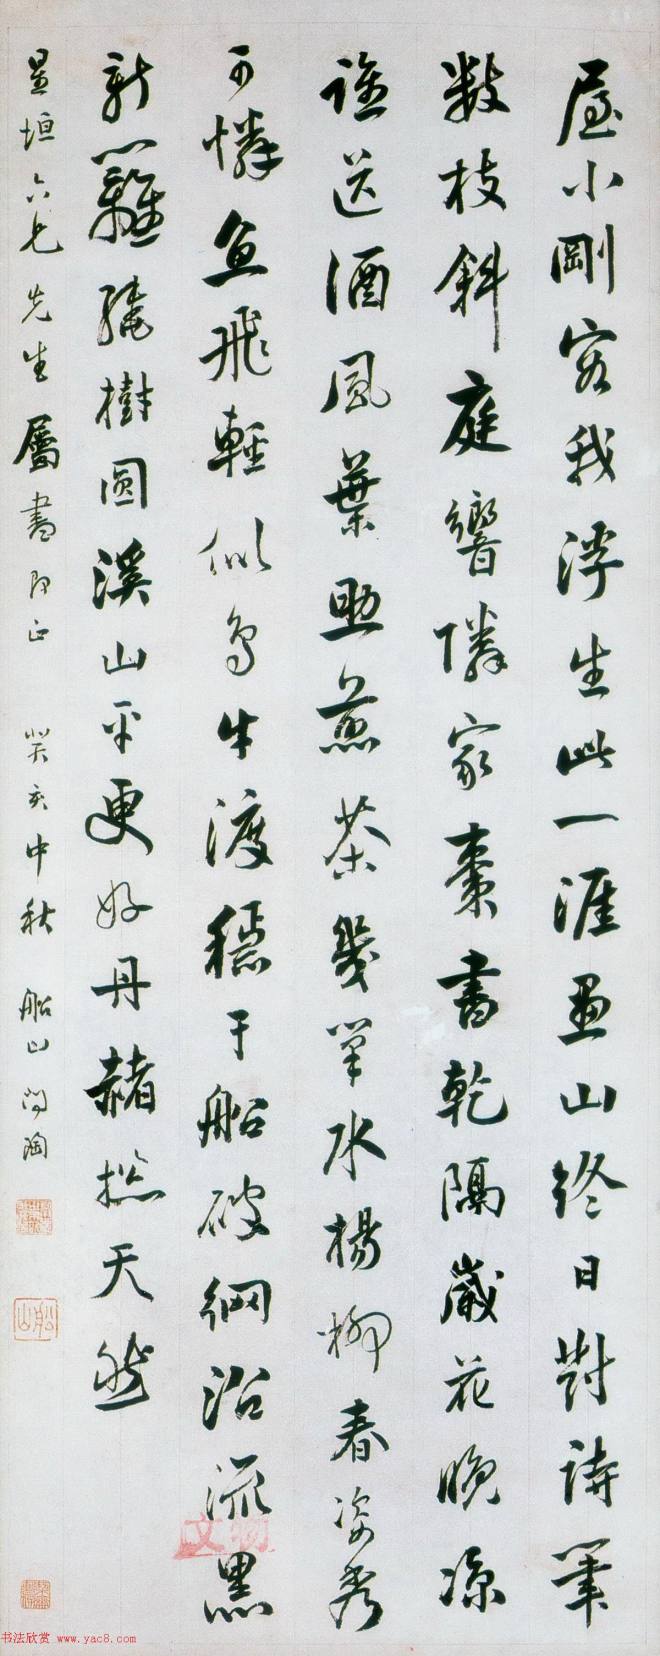 屋小剛容我浮生此一涯畫山終日對詩筆
數枝斜庭響隣家棗書乾隔歲花晚涼
誰送酒風葉助煎茶幾筆水楊柳春姿秀
可憐魚飛輕似鳥牛渡穩于船破網沿流黑
新籬繞樹圓溪山平更好丹赭揔天然
星垣六兄先生屬書即正 癸亥中秋 船山問陶
船山
文物
书法欣赏 www.yac8.com